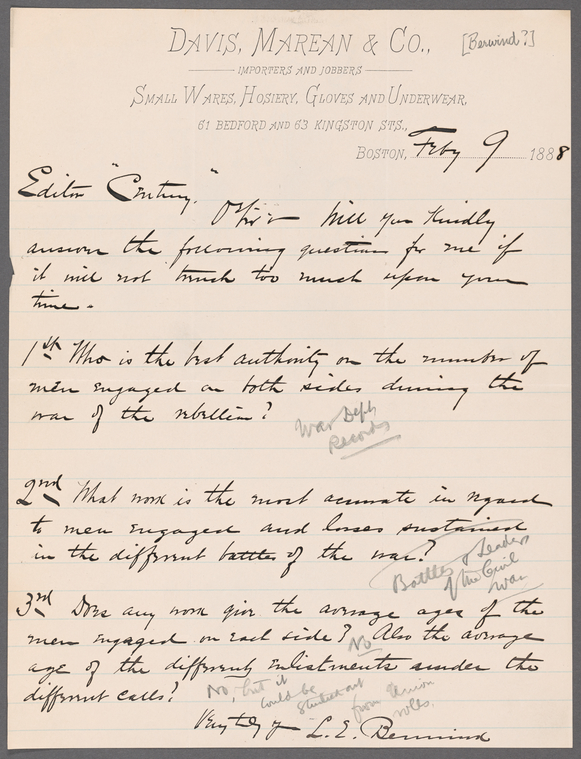 DAVIS, MAREAN & CO.,
[Berwind?]
IMPORTERS AND JOBBERS
SMALL WARES, HOSIERY, GLOVES AND UNDERWEAR,
61 BEDFORD AND 63 KINGSTON STS.,
BOSTON, Feby 9 1888
Editor "Century."
Will you Kindly
answer the following questions for me if
it will not trench too much upon your
time.
1st Who is the best authority on the number of
men engaged on both sides during the
war of the rebellion?
War Dept
Records
2nd What work is the most accurate in regard
to men engaged and losses sustained
in the different battles of the war?
Battles & Leaders
of the Civil
War
3rd Does any work give the average ages of the
men engaged on each side? No Also the average
age of the different enlistments under the
different calls?
No, but it
could be
studied out
from Union
rolls.
Very truly yr
L. E. Berwind